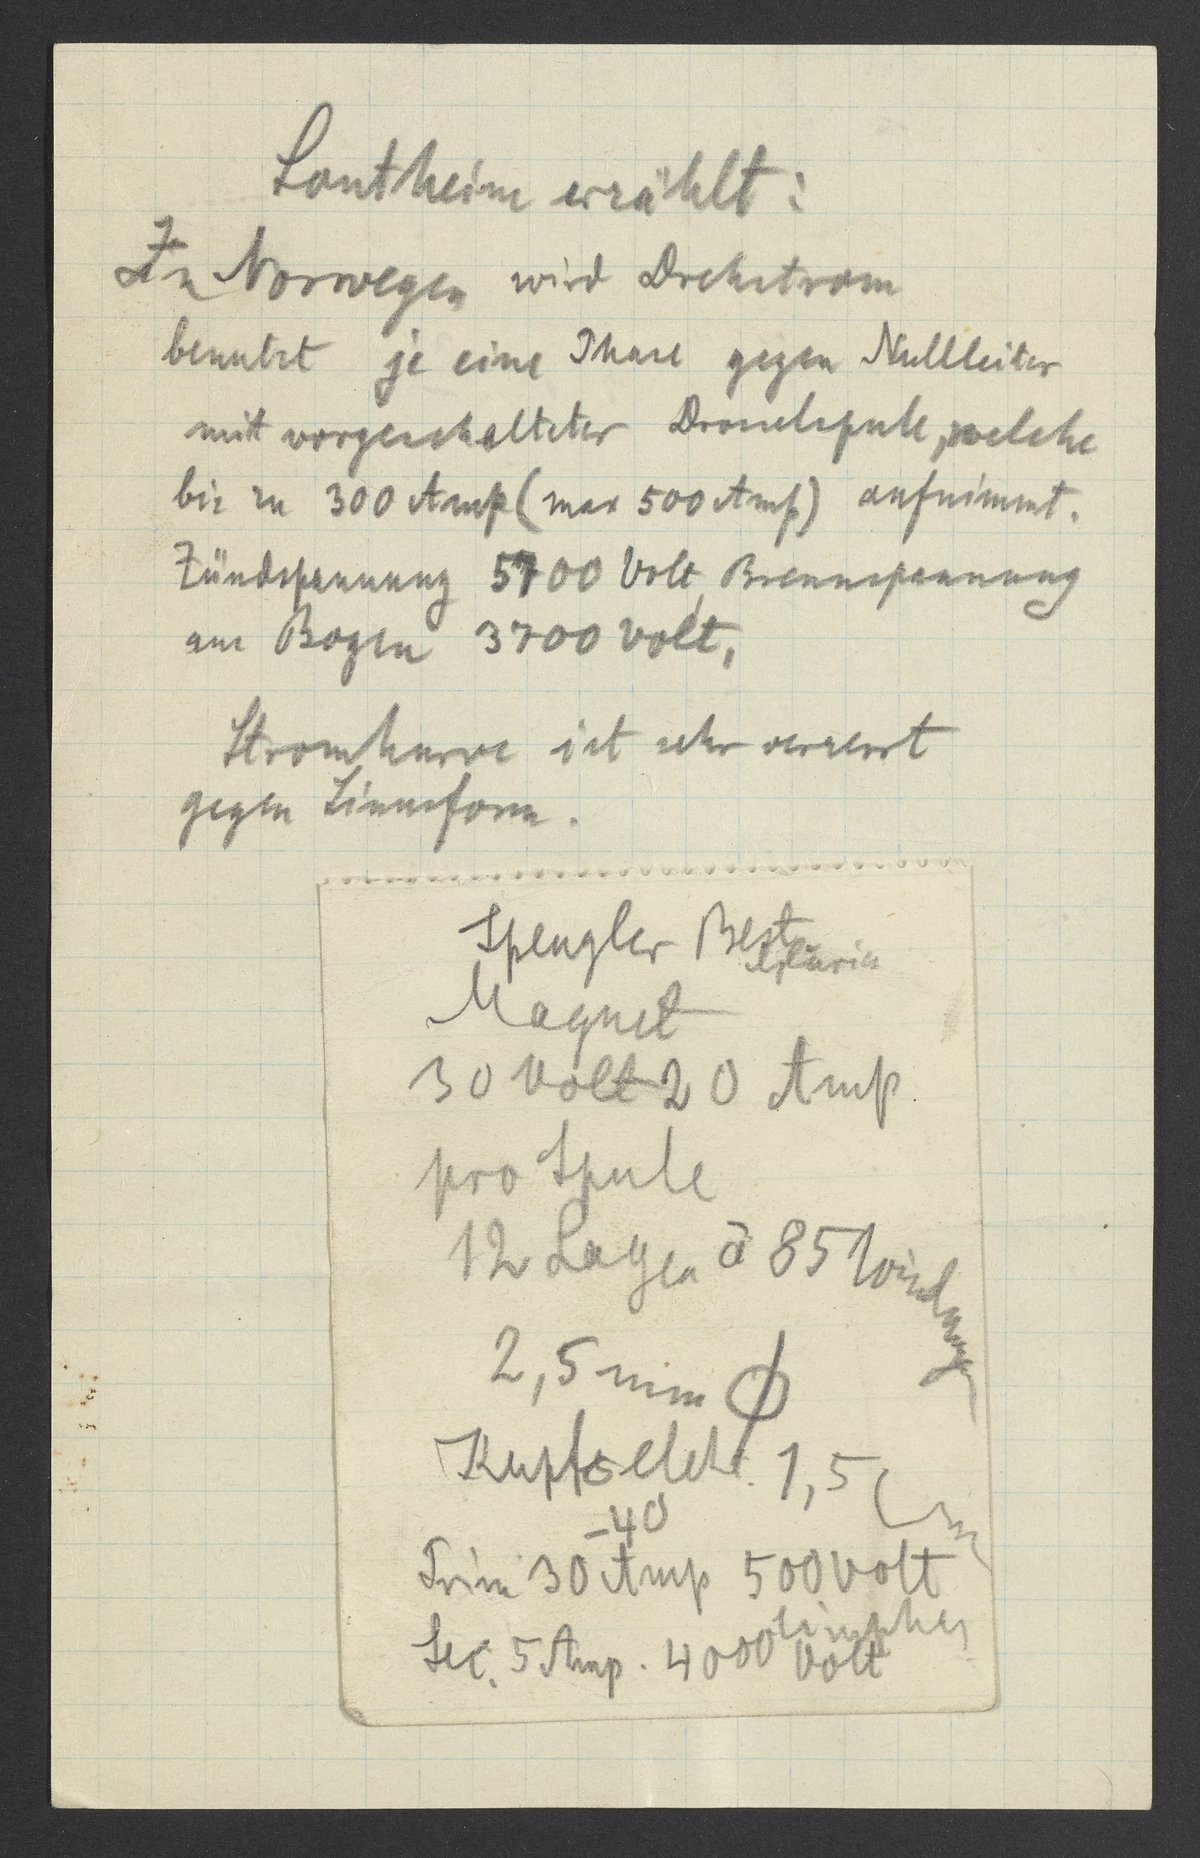 Sontheim erzählt:
In Norwegen wird Drehstrom
benutzt je eine Phase gegen Nullleiter
mit vorgeschalteter Drosselspule, welche
bis zu 300 Amp (max 500 Amp) aufnimmt.
Zündspannung 5700 Volt, Brennspannung
am Bogen 3700 Volt,
Stromkurve ist sehr verzerrt
gegen Sinusform.
Spengler Best
Magnet
30 Volt 20 Amp
pro Spule
12 Lagen à 85 Windungen
2,5 mm Ø
1,5
-40
Prim 30 Amp 500 Volt
Sec. 5 Amp. 4000 Volt